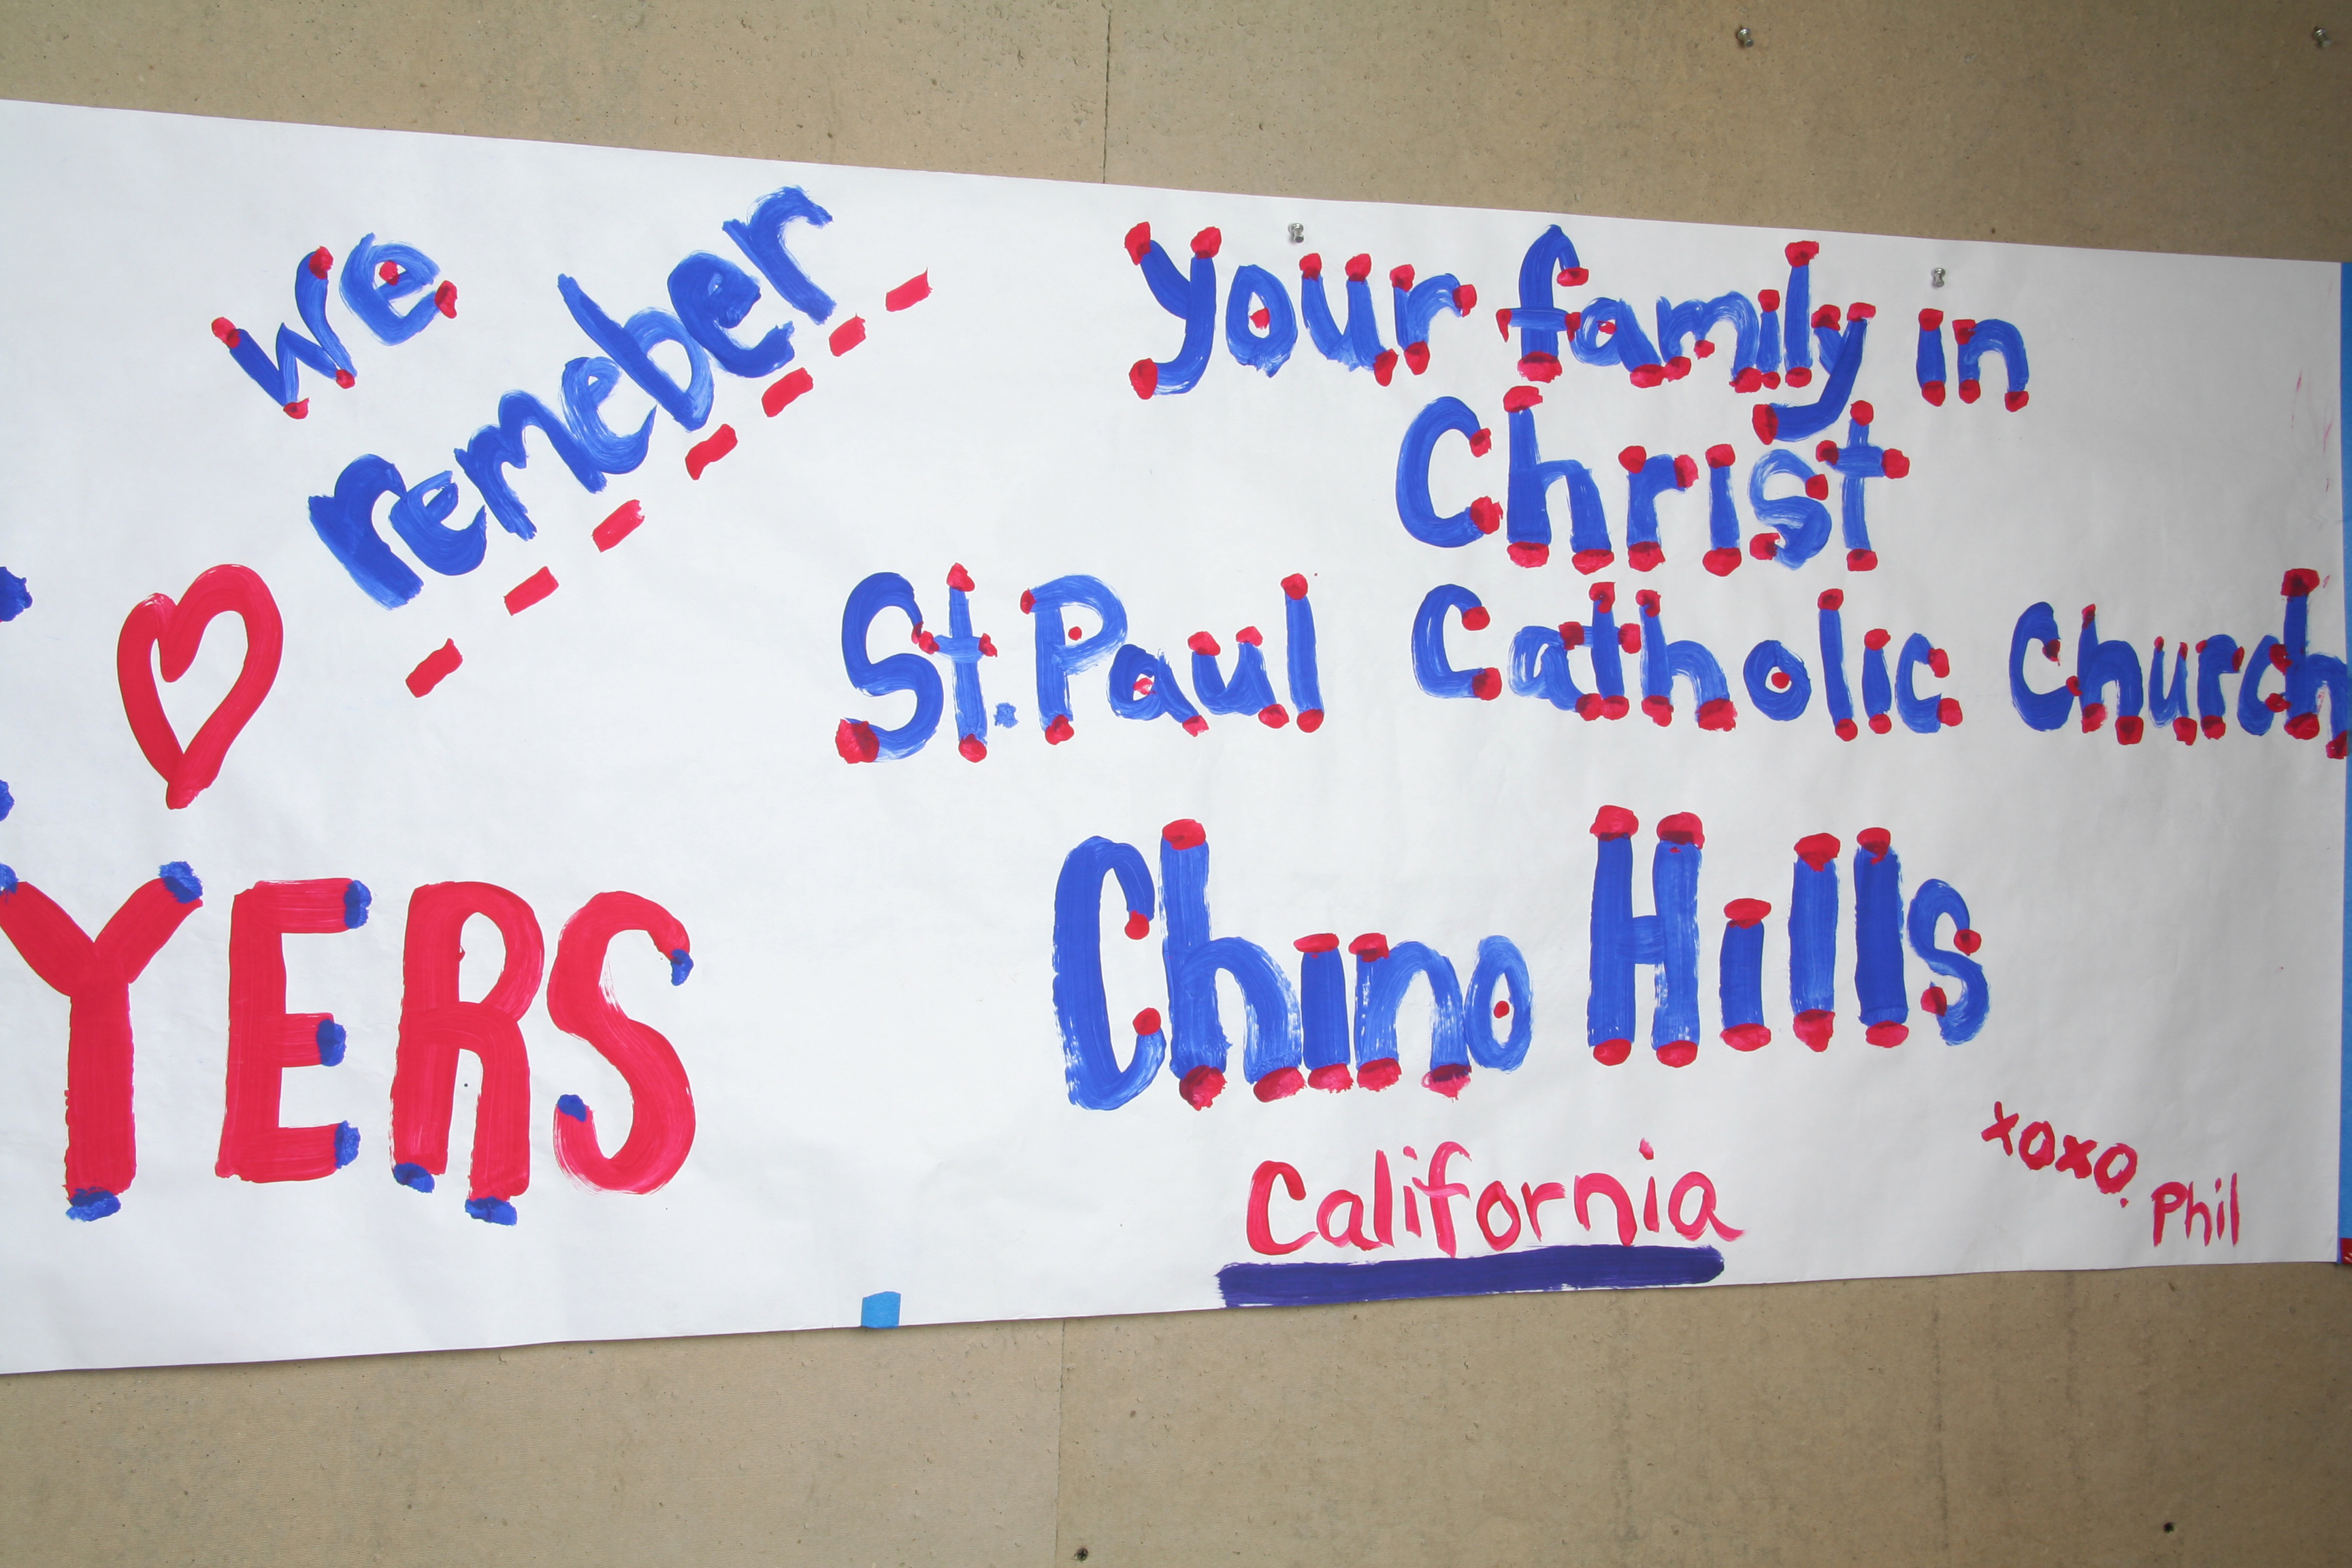 We
remeber
YERS
your family in
Christ
St. Paul Catholic Church
Chino Hills
California
xoxo.
Phil